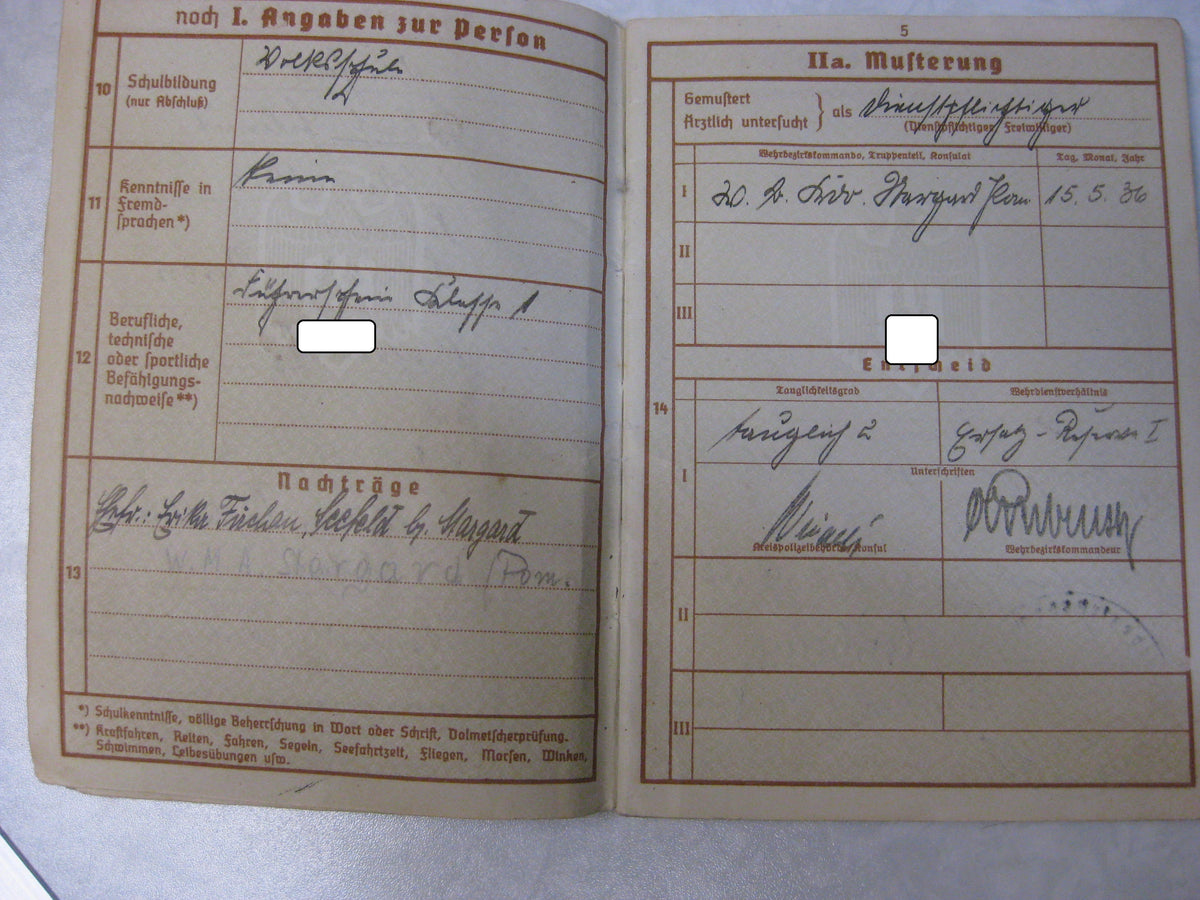 noch I. Angaben zur Person
10
Schulbildung
(nur Abschluß)
Volksschule
11
Kenntnisse in
Fremd-
sprachen*)
Keine
12
Berufliche,
technische
oder sportliche
Befähigungs-
nachweise**)
Führerschein Klasse 1
13
Nachträge
Ehefr.: Erika Seefeld
W. M. A. Stargard Pom.
*) Schulkenntnisse, völlige Beherrschung in Wort oder Schrift, Dolmetscherprüfung.
**) Kraftfahren, Reiten, Fahren, Segeln, Seefahrtzeit, Fliegen, Morsen, Winken,
Schwimmen, Leibesübungen usw.
5
IIa. Musterung
Gemustert
Ärztlich untersucht } als Dienstpflichtiger
(Dienstpflichtiger, Freiwilliger)
Wehrbezirkskommando, Truppenteil, Konsulat
Tag, Monat, Jahr
I
W. B. Kdo. Stargard Pom. 15. 5. 36
II
III
14
Entscheid
Tauglichkeitsgrad
Wehrdienstverhältnis
I
tauglich 2
Ersatz-Reserve I
Unterschriften
Kreispolizeibehörde, Konsul
Wehrbezirkskommandeur
II
III